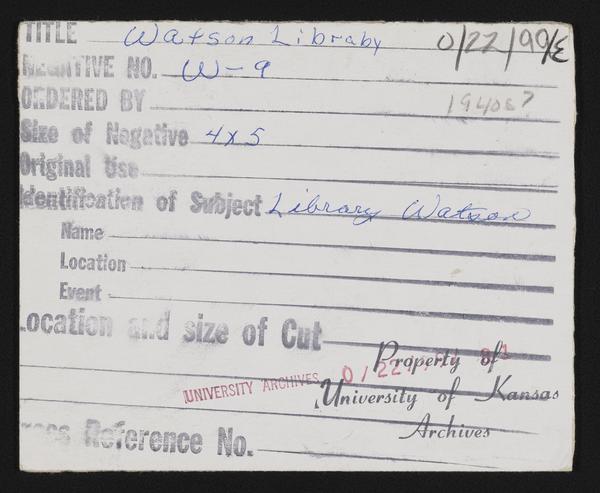 TITLE Watson Libraby 0/22/99/E
NEGATIVE NO. W-9
ORDERED BY
Size of Negative 4x5
Original Use
Identification of Subject Library Watson
Name
Location
Event
Location and size of Cut
Property of
UNIVERSITY ARCHIVES
University of Kansas
Archives
Reference No.